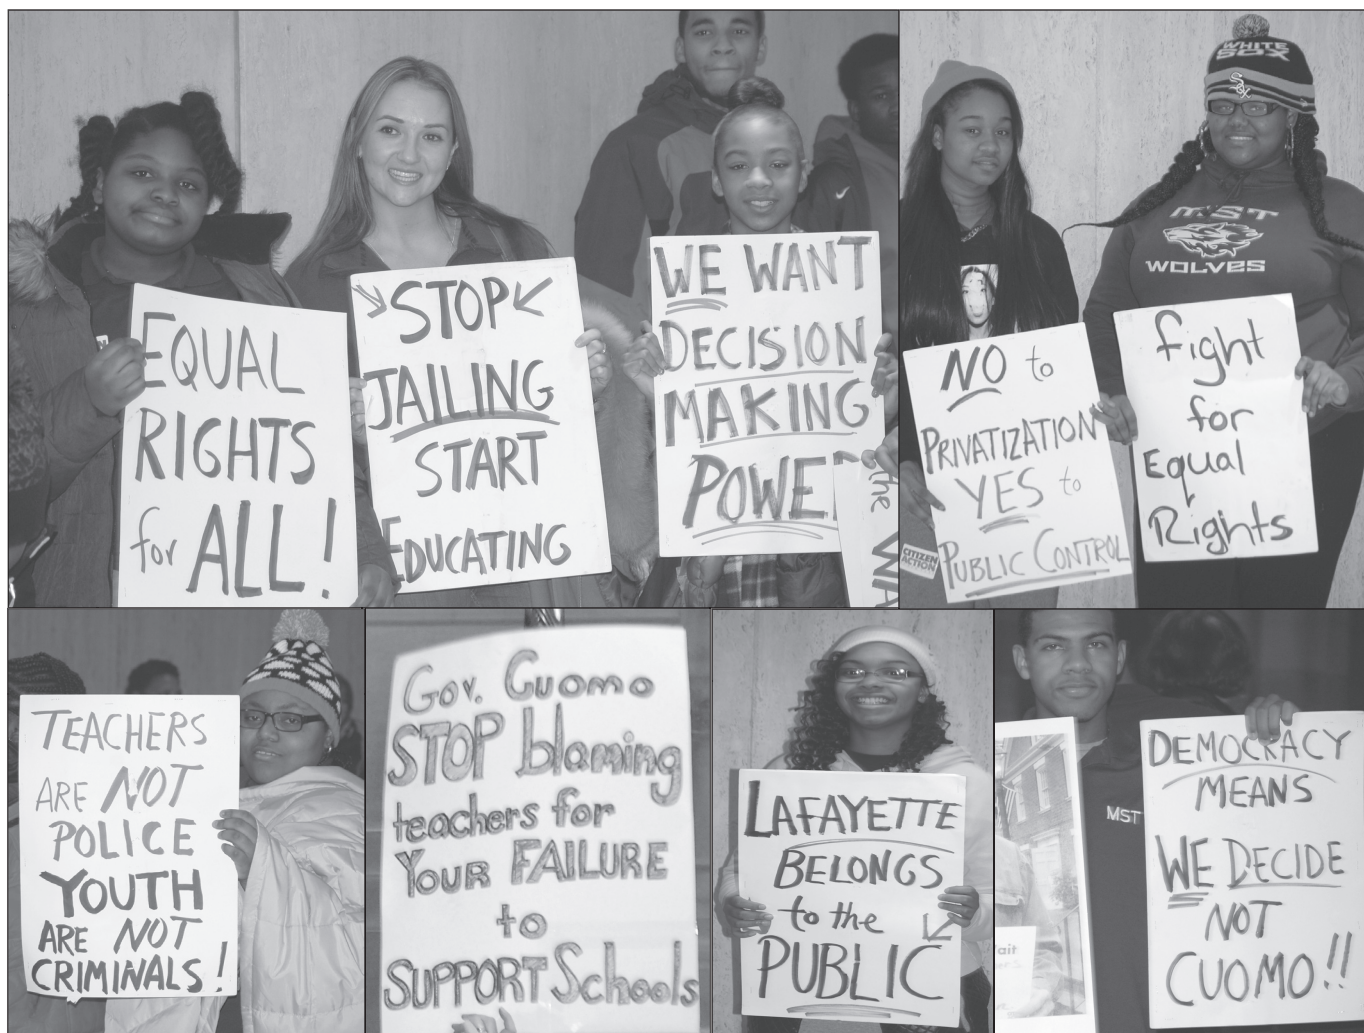 EQUAL
RIGHTS
for ALL!
STOP
JAILING
START
EDUCATING
WE WANT
DECISION
MAKING
POWE
the
WA
NO to
PRIVATIZATION
YES to
PUBLIC CONTROL
CITIZEN
ACTION
WHITE
SOX
Sox
MST
WOLVES
fight
for
Equal
Rights
TEACHERS
ARE NOT
POLICE
YOUTH
ARE NOT
CRIMINALS!
Gov. Cuomo
STOP blaming
teachers for
YOUR FAILURE
to
SUPPORT Schools
LAFAYETTE
BELONGS
to the
PUBLIC
MST
DEMOCRACY
MEANS
WE DECIDE
NOT
CUOMO!!